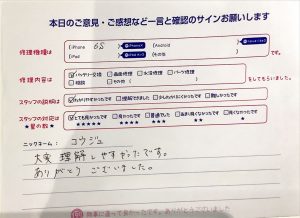 本日のご意見・ご感想など一言と確認のサインお願いします
修理機種は
iPhone 6S
iPad
Android
その他
修理内容は
バッテリー交換 画面修理 水没修理 パーツ修理
相談 その他
をしてもらいました。
スタッフの説明は
わかりやすかったです 理解できました 少しわかりにくかったです 難しかったです
スタッフの対応は
★星の数★
とても良かったです 良かったです 普通でした あまり良くなかったです 良くなかったです
★★★★★ ★★★★ ★★★ ★★ ★
ニックネーム： コウジュ
大変理解しやすかったです。
ありがとうございました。